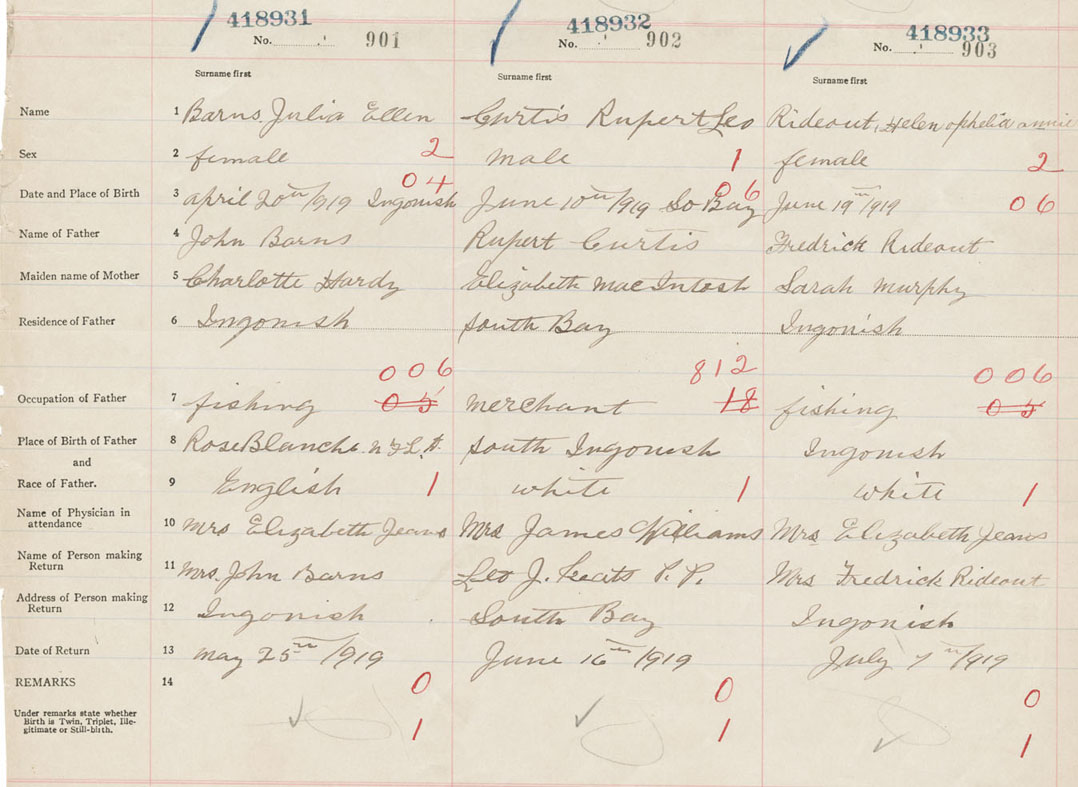 418931 418932 418933
No. 901 No. 902 No. 903
Surname first Surname first Surname first
Name 1 Barns, Julia Ellen Curtis Rupert Leo Rideout, Helen ophelia annie
Sex 2 female 2 male 1 female 2
04 06
Date and Place of Birth 3 april 20th/1919 Ingonish June 10th/1919 So Bay June 19th/1919 06
Name of Father 4 John Barns Rupert Curtis Fredrick Rideout
Maiden name of Mother 5 Charlotte Hardy Elizabeth MacIntosh Sarah Murphy
Residence of Father 6 Ingonish South Bay Ingonish
006 812 006
Occupation of Father 7 fishing 05 merchant 18 fishing 05
Place of Birth of Father 8 Rose Blanche. N.F.L.D. South Ingonish Ingonish
and
Race of Father. 9 English 1 white 1 white 1
Name of Physician in
attendance 10 Mrs Elizabeth Jeans Mrs James Williams Mrs Elizabeth Jeans
Name of Person making
Return 11 Mrs. John Barns Leo J. Keats P. P. Mrs Fredrick Rideout
Address of Person making
Return 12 Ingonish South Bay Ingonish
Date of Return 13 may 25th/1919 June 16th/1919 July 7th/1919
REMARKS 14 0 0 0
Under remarks state whether
Birth is Twin, Triplet, Ille-
gitimate or Still-birth. 1 1 1